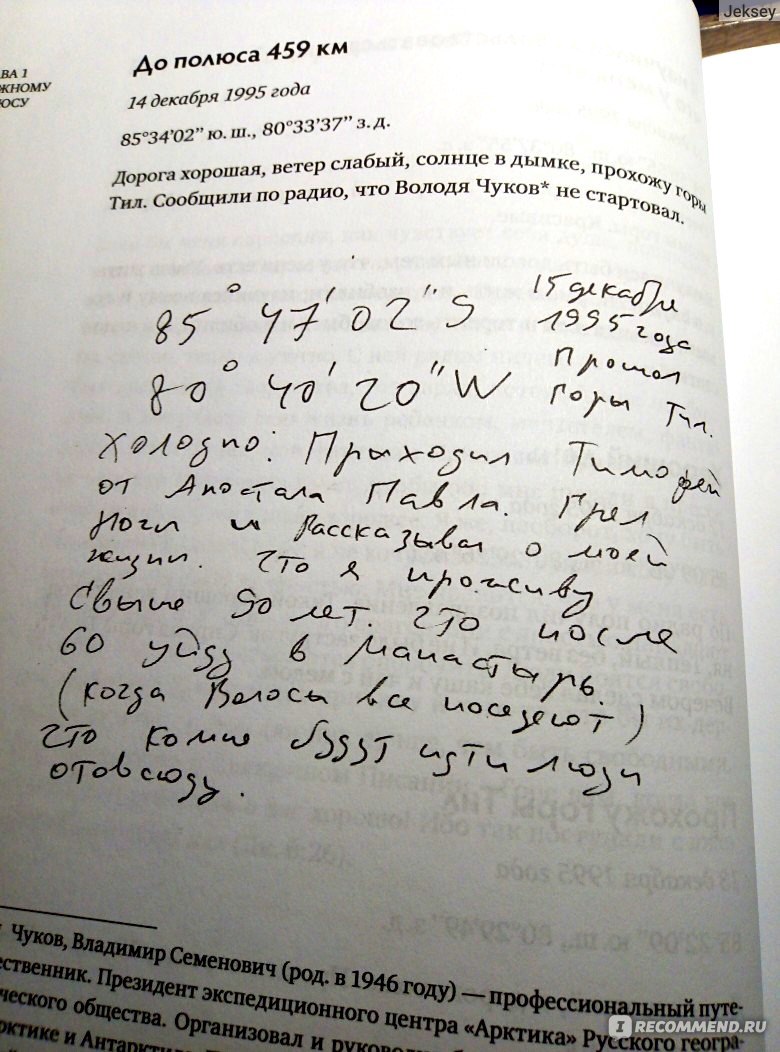 Jeksey
ВА 1
ЖНОМУ
ЮСУ
До полюса 459 км
14 декабря 1995 года
85°34’02” ю. ш., 80°33’37” з. д.
Дорога хорошая, ветер слабый, солнце в дымке, прохожу горы
Тил. Сообщили по радио, что Володя Чуков* не стартовал.
85° 47' 02" S 15 декабря
1995 года
80° 40' 20" W Прошол
Горы Тил.
Холодно. Прыходил Тимофей
от Апостала Павла. Грел
Ноги и Рассказывал о моей
жизни. Что я проживу
Свыше 90 лет. Что после
60 уйду в манастырь.
(когда Волосы все поседеют)
Что комне будут идти люди
отовсюду.
Чуков, Владимир Семенович (род. в 1946 году) — профессиональный путе-
ественник. Президент экспедиционного центра «Арктика» Русского геогра-
ческого общества. Организовал и руководи
рктике и Антаркти
IRECOMMEND.RU